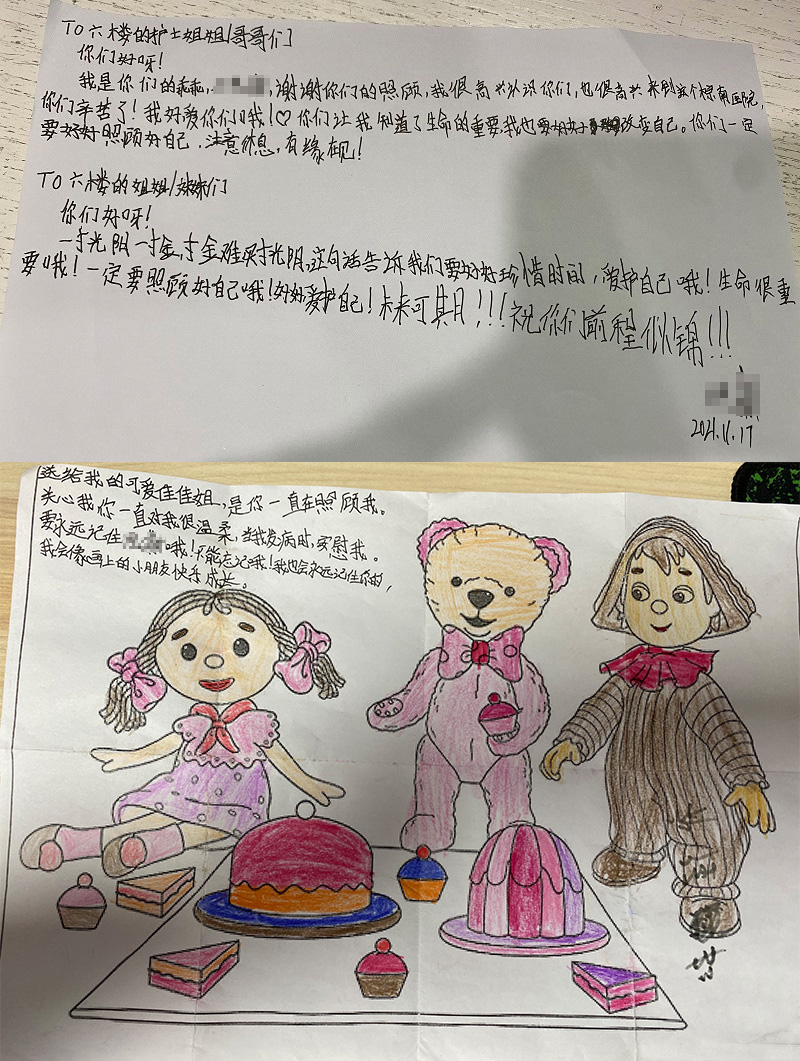 To 六楼的护士姐姐/哥哥们
你们好呀!
我是你们的乖乖,谢谢你们的照顾,我很高兴认识你们,也很高兴来到这个标南医院,
你们辛苦了!我好爱你们哦!♡你们让我知道了生命的重要,我也要改变自己。你们一定
要好好照顾好自己,注意休息,有缘在见!
To 六楼的姐姐/妹妹们
你们好呀!
一寸光阴一寸金,寸金难买寸光阴,这句话告诉我们要好好珍惜时间,爱护自己哦!生命很重
要哦!一定要照顾好自己哦!好好爱护自己!未来可其月!!!祝你们前程似锦!!!
2021.11.17
送给我的可爱佳佳姐,是你一直在照顾我。
关心我你一直对我很温柔,当我发病时,安慰我。
要永远记住哦!不能忘记哦!我也会永远记住你的,
我会像画上的小朋友快乐成长。